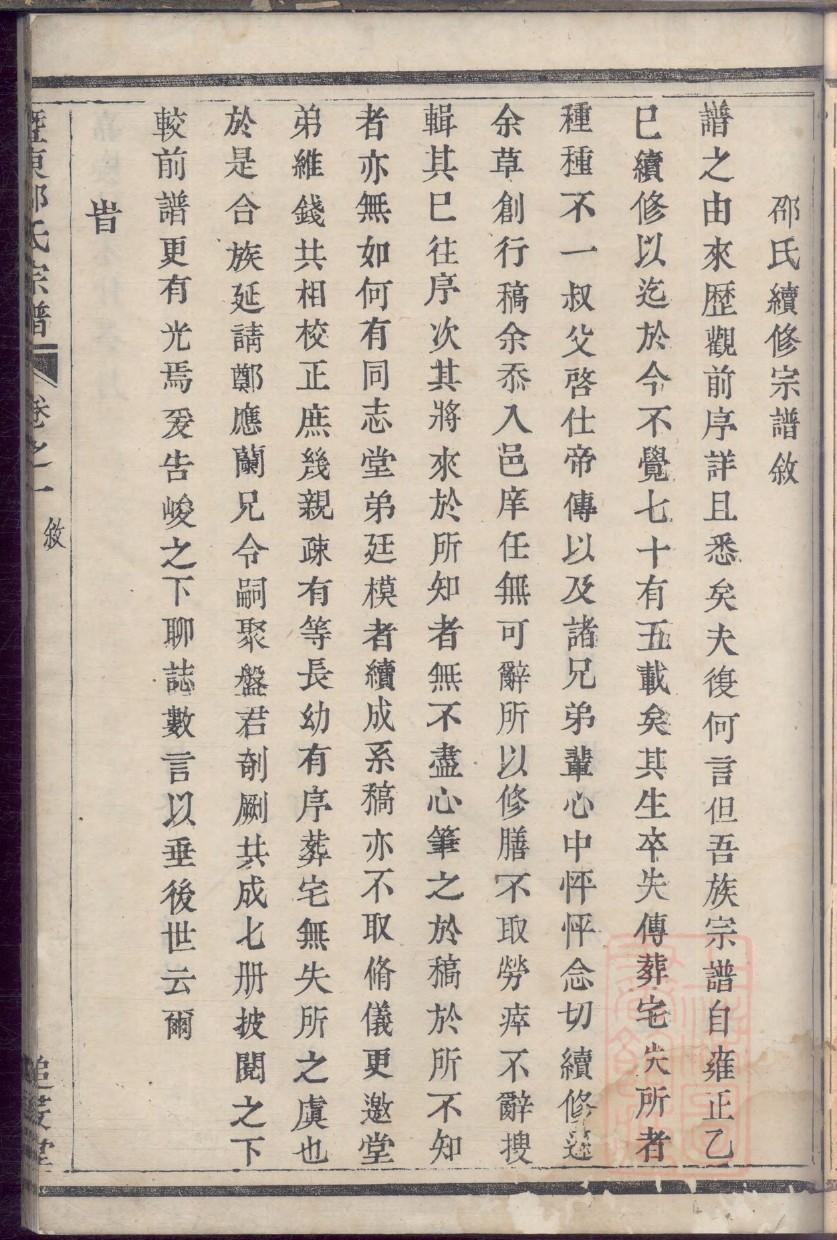 邵氏續修宗譜敘
譜之由來歷觀前序詳且悉矣夫復何言但吾族宗譜自雍正乙
巳續修以迄於今不覺七十有五載矣其生卒失傳葬宅失所者
種種不一叔父啓仕帝傳以及諸兄弟輩心中怦怦念切續修遂
余草創行稿余忝入邑庠任無可辭所以修膳不取勞瘁不辭搜
輯其已往序次其將來於所知者無不盡心筆之於稿於所不知
者亦無如何有同志堂弟廷模者續成系稿亦不取脩儀更邀堂
弟維錢共相校正庶幾親疎有等長幼有序葬宅無失所之虞也
於是合族延請鄭應蘭兄令嗣聚盤君剞劂共成七册披閱之下
較前譜更有光焉爰告峻之下聊誌數言以垂後世云爾
旹
暨東邵氏宗譜 卷之一 敘 追孝堂